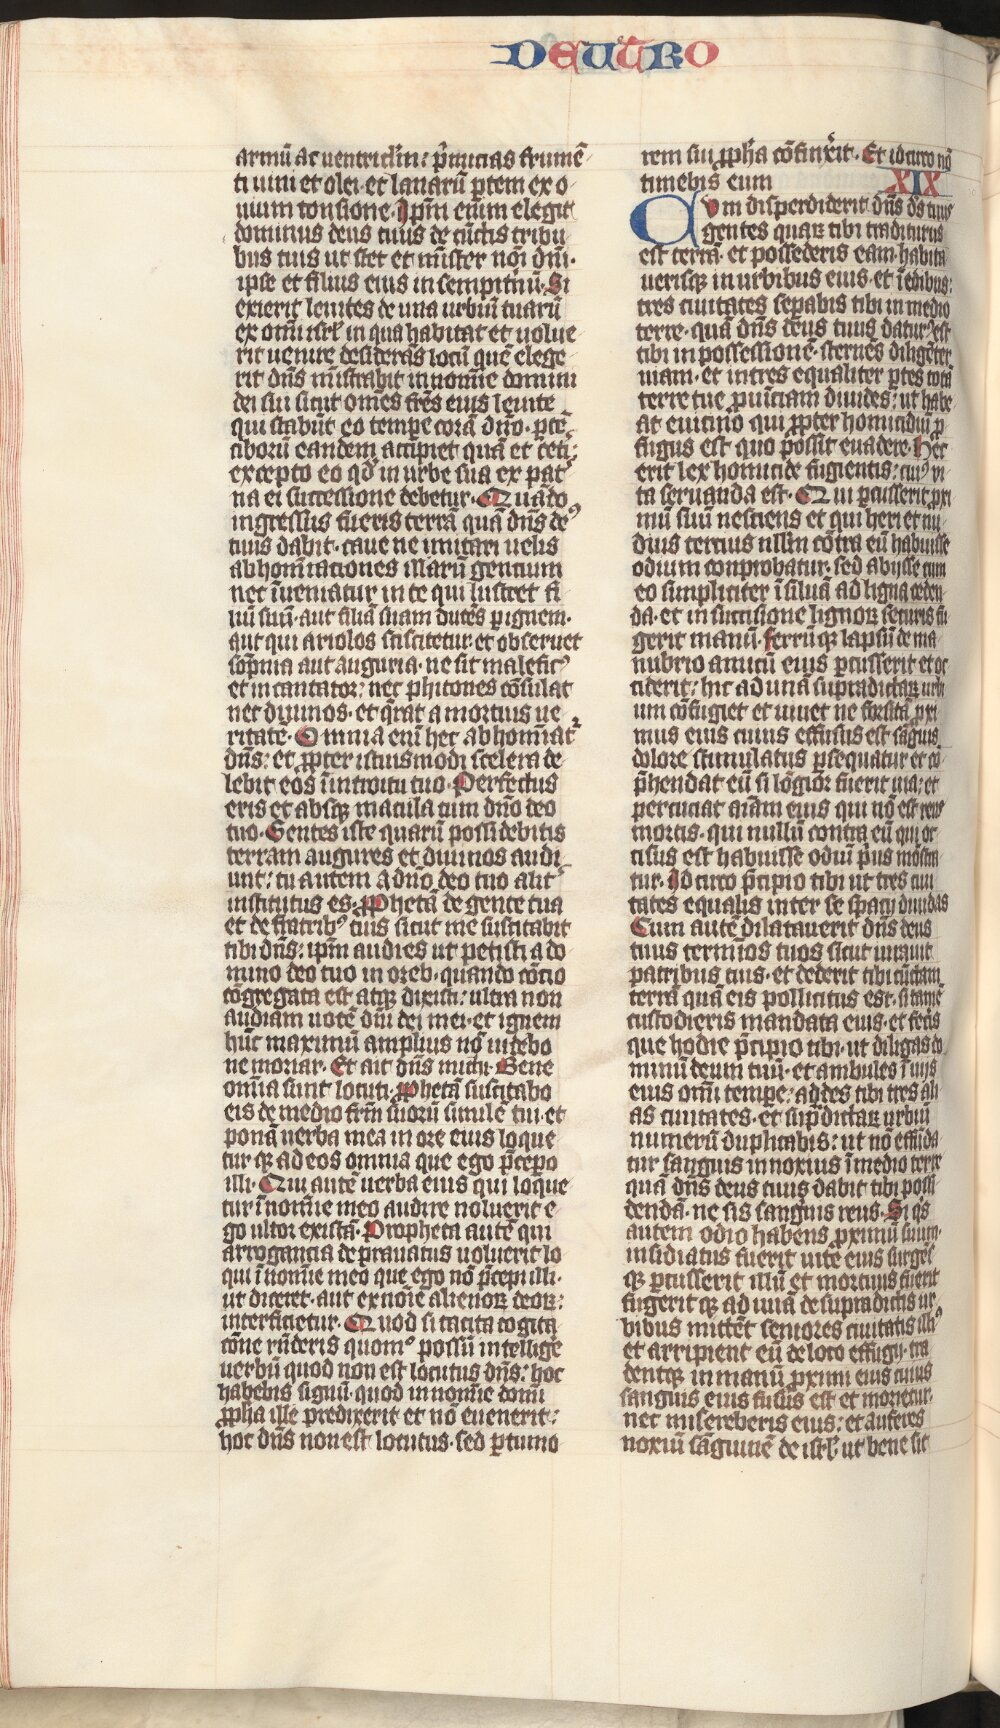 DEUTRO
armū ac uentriclm: p̄mitias frumē
ti uini et olei et lanarū ptem ex o
uium tonsione. Ip̄m enim elegit
dominus deus tuus de cūctis tribu
bus tuis ut stet et mīster nōi dn̄i.
ipse et filius eius in sempitnū. Si
exierit leuites de una urbiū tuarū
ex om̄i isrl̄ in qua habitat et uolue
rit uenire desiderās locū quē elege
rit dn̄s mīstrabit in nomīe domini
dei sui sicut om̄es frēs eius leuite
qui stabūt eo tempe corā dn̄o. ptē
ciborū eandem accipiet quā et cet̄i:
excepto eo qd̄ in urbe sua ex pat̄
na ei successione debetur. Quādo
ingressus fueris terrā quā dn̄s deꝰ
tuus dabit. caue ne imitari uelis
abhom̄iationes illarū gentium
nec īueniatur in te qui lustret fi
liū suū. aut filiā suam ducēs p ignem.
aut qui ariolos sciscitetur. et obseruet
sōpnia aut auguria. ne sit maleficꝰ
et incantator: nec phitones cōsulat
nec diuinos. et q̄rat a mortuis ue
ritatē. Omnia eni hec abhomīat
dn̄s: et ꝓpter istiusmodi scelera de
lebit eos ī introitu tuo. Perfectus
eris et absqꝫ macula cum dn̄o deo
tuo. Gentes iste quarū possidebitis
terram augures et diuinos audi
unt: tu autem a dn̄o deo tuo alit̄
institutus es. ꝓphetā de gente tua
et de fratribꝰ tuis sicut me suscitabit
tibi dn̄s: ip̄m audies ut petisti a do
mino deo tuo in oreb. quando cōcio
cōgregata est atqꝫ dixisti: ultra non
audiam uocē dn̄i dei mei. et ignem
hūc maximū amplius nō uidebo
ne moriar. Et ait dn̄s michi. Bene
omīa sunt locuti. ꝓphetā suscitabo
eis de medio frm̄ suorū similē tui. et
ponā uerba mea in ore eius loque
tur qꝫ ad eos omnia que ego p̄cepo
illi. Qui autē uerba eius qui loque
tur ī nomīe meo audire noluerit e
go ultor existā. Propheta autē qui
arrogancia deprauatus uoluerit lo
qui ī nomīe meo que ego nō p̄cepi illi.
ut diceret. aut ex noīe alienoꝝ deoꝝ:
interficietur. Quod si tacita cogita
cōne rn̄deris quomᵒ possū intellige
uerbū quod non est locutus dn̄s: hoc
habebis signū. quod in nomīe domī
ꝓpha ille predixerit et nō euenerit:
hoc dn̄s non est locutus. sed p tumo
rem sui ꝓpha cōfinxit. Et idcirco nō
timebis eum
XIX
Cvm disperdiderit dn̄s ds̄ tuus
gentes quaꝝ tibi traditurus
est terrā. et possederis eam. habita
uerisqꝫ in urbibus eius. et ī edibus:
tres ciuitates sepabis tibi in medio
terre. quā dn̄s deus tuus daturꝰ est
tibi in possessionē. sternēs diligēter
uiam. et in tres equaliter ptes totā
terre tue prouīciam diuides: ut habe
at e uicino qui ꝓpter homicidiū p
fugus est quo possit euadere. Hec
erit lex homicide fugientis: cuiꝰ ui
ta seruanda est. Qui pcusserit pxi
mū suū nesciens et qui heri et nu
dius tercius nllm cōtra eū habuisse
odium comprobatur. sed abiisse cum
eo simpliciter ī siluā ad ligna ceden
da. et in succisione lignoꝝ securis fu
gerit manū. ferrūqꝫ lapsū de ma
nubrio amicū eius pcusserit et oc
ciderit: hic ad unā supradictaꝝ urbi
um cōfugiet et uiuet ne forsitā pxi
mus eius cuius effusus est sāguis
dolore stimulatus psequatur et co
p̄hendat eū si lōgior fuerit uia: et
percuciat aīam eius qui nō est reus
mortis. qui nullū contra eū qui oc
cisus est habuisse odiū p̄us mōstra
tur. Idcirco p̄cipio tibi ut tres ciui
tates equalis inter se spacij diuidas
Cum autē dilatauerit dn̄s deus
tuus termīos tuos sicut iurauit
patribus tuis. et dederit tibi cūctam
terrā quā eis pollicitus est. si tamē
custodieris mandata eius. et fec̄is
que hodie p̄cipio tibi. ut diligas do
minū deum tuū. et ambules ī uijs
eius omi tempe: addes tibi tres ali
as ciuitates. et sup̄dictaꝝ urbiū
numerū duplicabis: ut nō effūda
tur sanguis innoxius ī medio terre
quā dn̄s deus tuus dabit tibi possi
dendā. ne sis sangīs reus. Si q̄s
autem odio habens pximū suum.
insidiatus fuerit uite eius surgēs
qꝫ pcusserit illū et mortuus fuerit
fugerit qꝫ ad unā de supradictis ur
bibus mittēt seniores ciuitatis illiꝰ
et arripient eū de loco effugij. tra
dentqꝫ in manū pximi eius cuius
sanguis eius fusus est et morietur.
nec misereberis eius: et auferes
noxiū sāguinē de isrl̄. ut bene sit